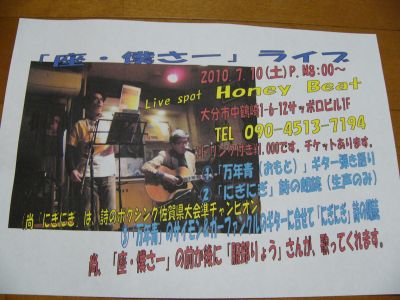 「座・僕さー」ライブ
2010.7.10(土)P.M8:00～
Live spot Honey Beat
大分市中鶴崎1-6-12サッポロビル1F
TEL 090-4513-7194
1ドリンク付き¥1,000です、チケットあります。
①「万年青(おもと)」ギター弾き語り
②「にぎにぎ」詩の朗読(生声のみ)
(尚「にぎにぎ」は、詩のボクシング佐賀県大会準チャンピオン
③「万年青」のサイモン&ガーファンクルのギターに合せて「にぎにぎ」詩の朗読
尚、「座・僕さー」の前か後に「服部りょう」さんが、歌ってくれます。